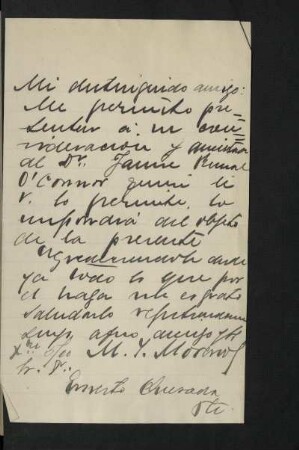 Mi distinguido amigo:
Me permito pre-
sentar a su consi-
deracion y amistad
al Dr. Jaime
O'Connor quien si
V. lo permite, lo
impondrá del objeto
de la presente
Agradeciendole desde
ya todo lo que por
el haga me es grato
saludarlo
suyo afmo amigo y
M. Y. Moreno
Sr. Dr.
Ernesto Quesada
Pte.